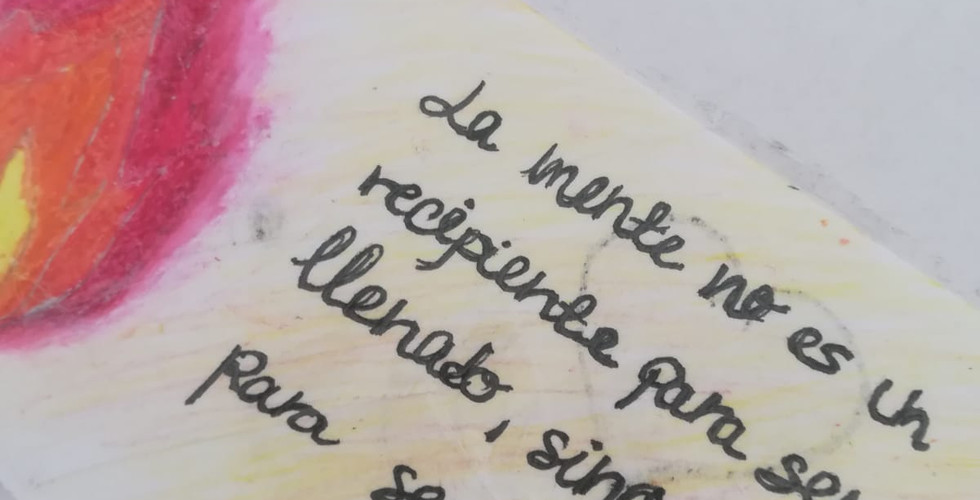 La mente no es un
recipiente para se
llenado, sino
para se